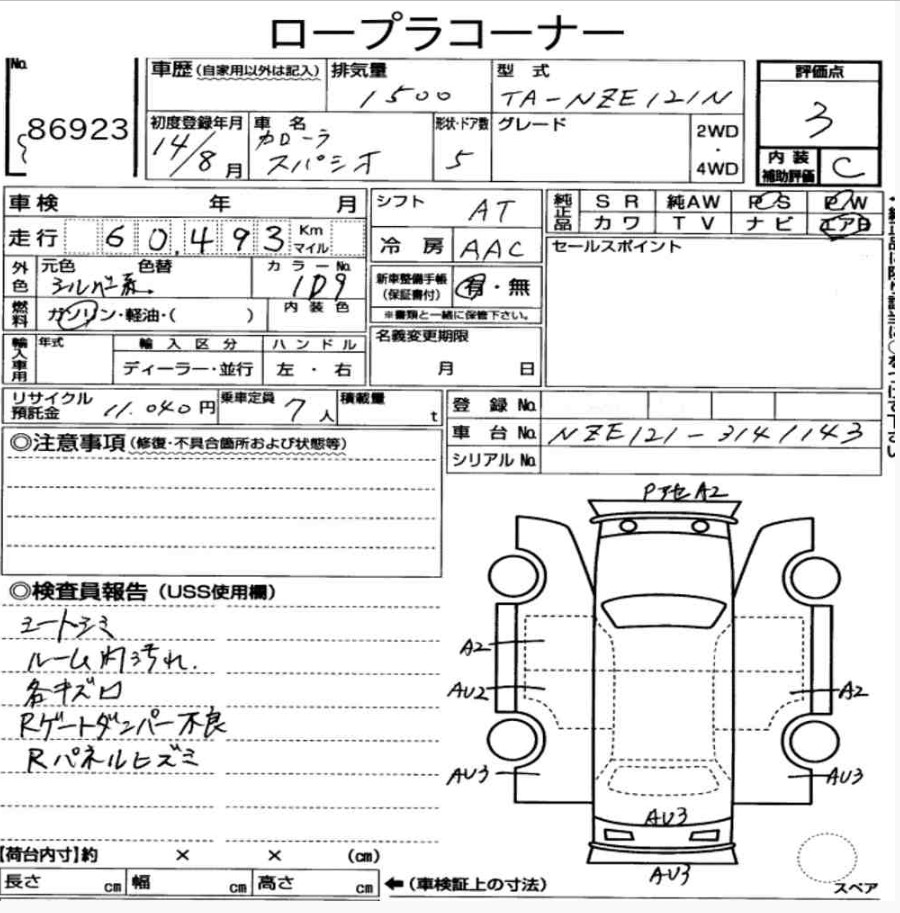 ロープラコーナー
No. 86923
車歴(自家用以外は記入) 排気量 1500 型式 TA-NZE121N 評価点 3
初度登録年月 14/8月 車名 カローラ スパシオ 形状・ドア数 5 グレード 2WD・4WD 内装補助評価 C
車検 年 月 シフト AT 純正品 SR 純AW PS PW
走行 60,493 Km マイル 冷房 AAC カワ TV ナビ エアB
外色 元色 シルバー系. 色替 カラーNo. 1D9 新車整備手帳(保証書付) 有・無 セールスポイント
燃料 ガソリン・軽油・( ) 内装色 ※書類と一緒に保管下さい。
輸入車用 年式 輸入区分 ディーラー・並行 ハンドル 左・右 名義変更期限 月 日
リサイクル預託金 11.040円 乗車定員 7人 積載量 t 登録No.
車台No. NZE121-3141143
シリアルNo.
◎注意事項(修復・不具合箇所および状態等)
Pアセ A2
◎検査員報告(USS使用欄)
シートシミ
ルーム内汚れ.
各キズロ
Rゲートダンパー不良
Rパネルヒズミ
A2
AU2 A2
AU3 AU3
AU3
AU3
【荷台内寸】約 × × (cm)
長さ cm 幅 cm 高さ cm ←(車検証上の寸法)
スペア